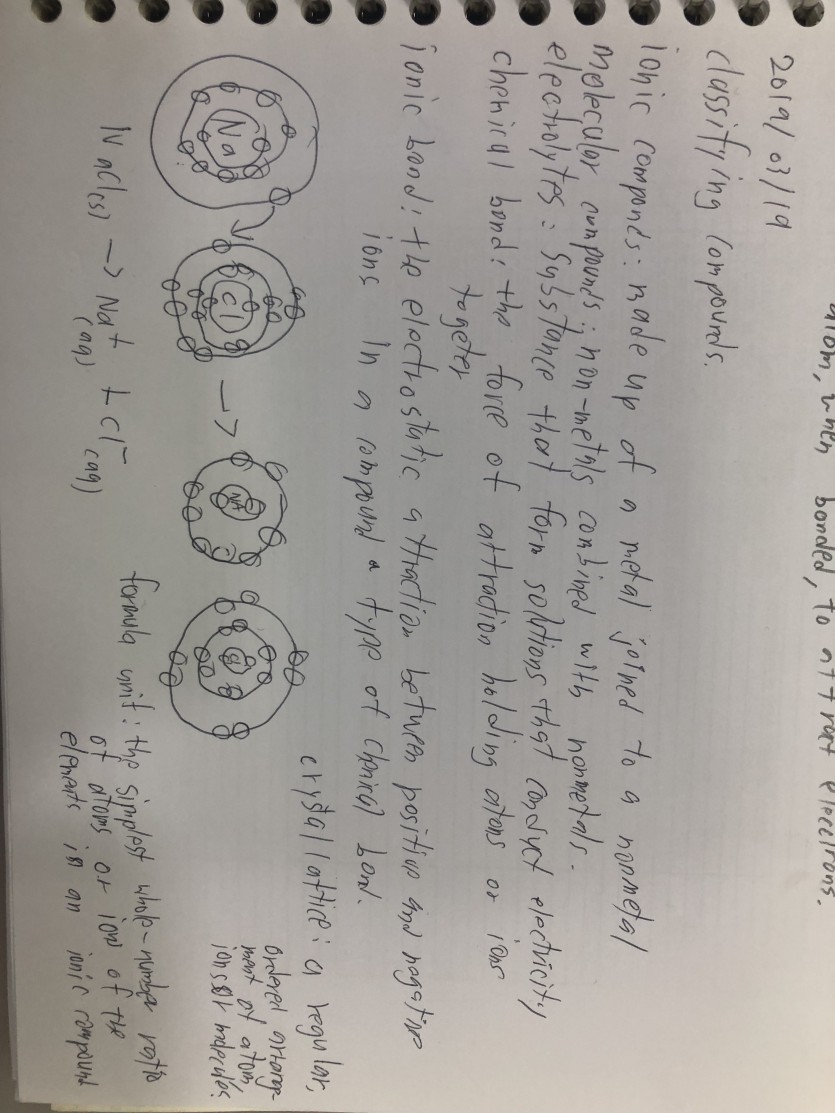 atom, when bonded, to attract electrons.
2019/03/19
classifying compounds.
ionic compounds: made up of a metal joined to a nonmetal
molecular compounds: non-metals combined with nonmetals.
electrolytes: substance that form solutions that conduct electricity
chemical bond: the force of attraction holding atoms or ions
togeter
ionic bond: the electrostatic attraction between positive and negative
ions in a compound a type of chmical bond.
Na
Cl
→
Na
Cl
crystal lattice: a regular,
ordered arrang-
ment of atom,
ions or molecules.
NaCl(s) → Na+(aq) + Cl-(aq)
formula unit: the simplest whole-number ratio
of atoms or ion of the
elements in an ionic compound